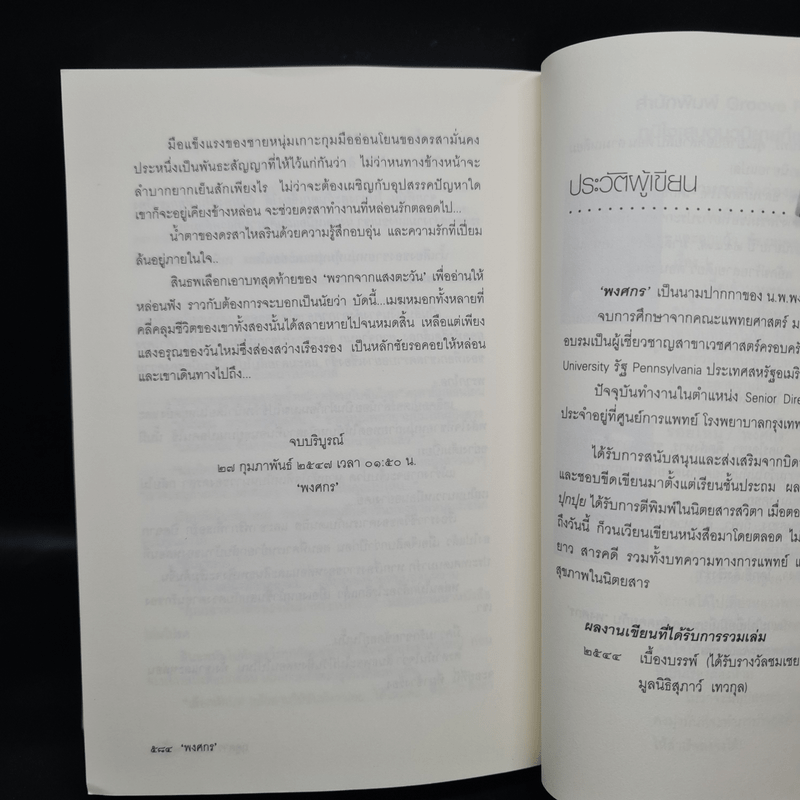 มือแข็งแรงของชายหนุ่มเกาะกุมมืออ่อนโยนของดรสามั่นคง
ประหนึ่งเป็นพันธะสัญญาที่ให้ไว้แก่กันว่า ไม่ว่าหนทางข้างหน้าจะ
ลำบากยากเย็นสักเพียงไร ไม่ว่าจะต้องเผชิญกับอุปสรรคปัญหาใด
เขาก็จะอยู่เคียงข้างหล่อน จะช่วยดรสาทำงานที่หล่อนรักตลอดไป...
น้ำตาของดรสาไหลรินด้วยความรู้สึกอบอุ่น และความรักที่เปี่ยม
ล้นอยู่ภายในใจ..
สินธพเลือกเอาบทสุดท้ายของ 'พรากจากแสงตะวัน' เพื่ออ่านให้
หล่อนฟัง ราวกับต้องการจะบอกเป็นนัยว่า บัดนี้...เมฆหมอกทั้งหลายที่
คลี่คลุมชีวิตของเขาทั้งสองนั้นได้สลายหายไปจนหมดสิ้น เหลือแต่เพียง
แสงอรุณของวันใหม่ซึ่งส่องสว่างเรืองรอง เป็นหลักชัยรอคอยให้หล่อน
และเขาเดินทางไปถึง...
จบบริบูรณ์
๒๗ กุมภาพันธ์ ๒๕๔๗ เวลา ๐๑:๕๐ น.
'พงศกร'
๕๘๔ 'พงศกร'
ประวัติผู้เขียน
'พงศกร' เป็นนามปากกาของ น.พ.พง
จบการศึกษาจากคณะแพทยศาสตร์ ม
อบรมเป็นผู้เชี่ยวชาญสาขาเวชศาสตร์ครอบครั
University รัฐ Pennsylvania ประเทศสหรัฐอเมริ
ปัจจุบันทำงานในตำแหน่ง Senior Dire
ประจำอยู่ที่ศูนย์การแพทย์ โรงพยาบาลกรุงเทพ
ได้รับการสนับสนุนและส่งเสริมจากบิด
และชอบขีดเขียนมาตั้งแต่เรียนชั้นประถม ผล
ปุกปุย ได้รับการตีพิมพ์ในนิตยสารสวิตา เมื่อตอ
ถึงวันนี้ ก็วนเวียนเขียนหนังสือมาโดยตลอด ไม
ยาว สารคดี รวมทั้งบทความทางการแพทย์ แ
สุขภาพในนิตยสาร
ผลงานเขียนที่ได้รับการรวมเล่ม
๒๕๔๔ เบื้องบรรพ์ (ได้รับรางวัลชมเชย
มูลนิธิสุภาว์ เทวกุล)